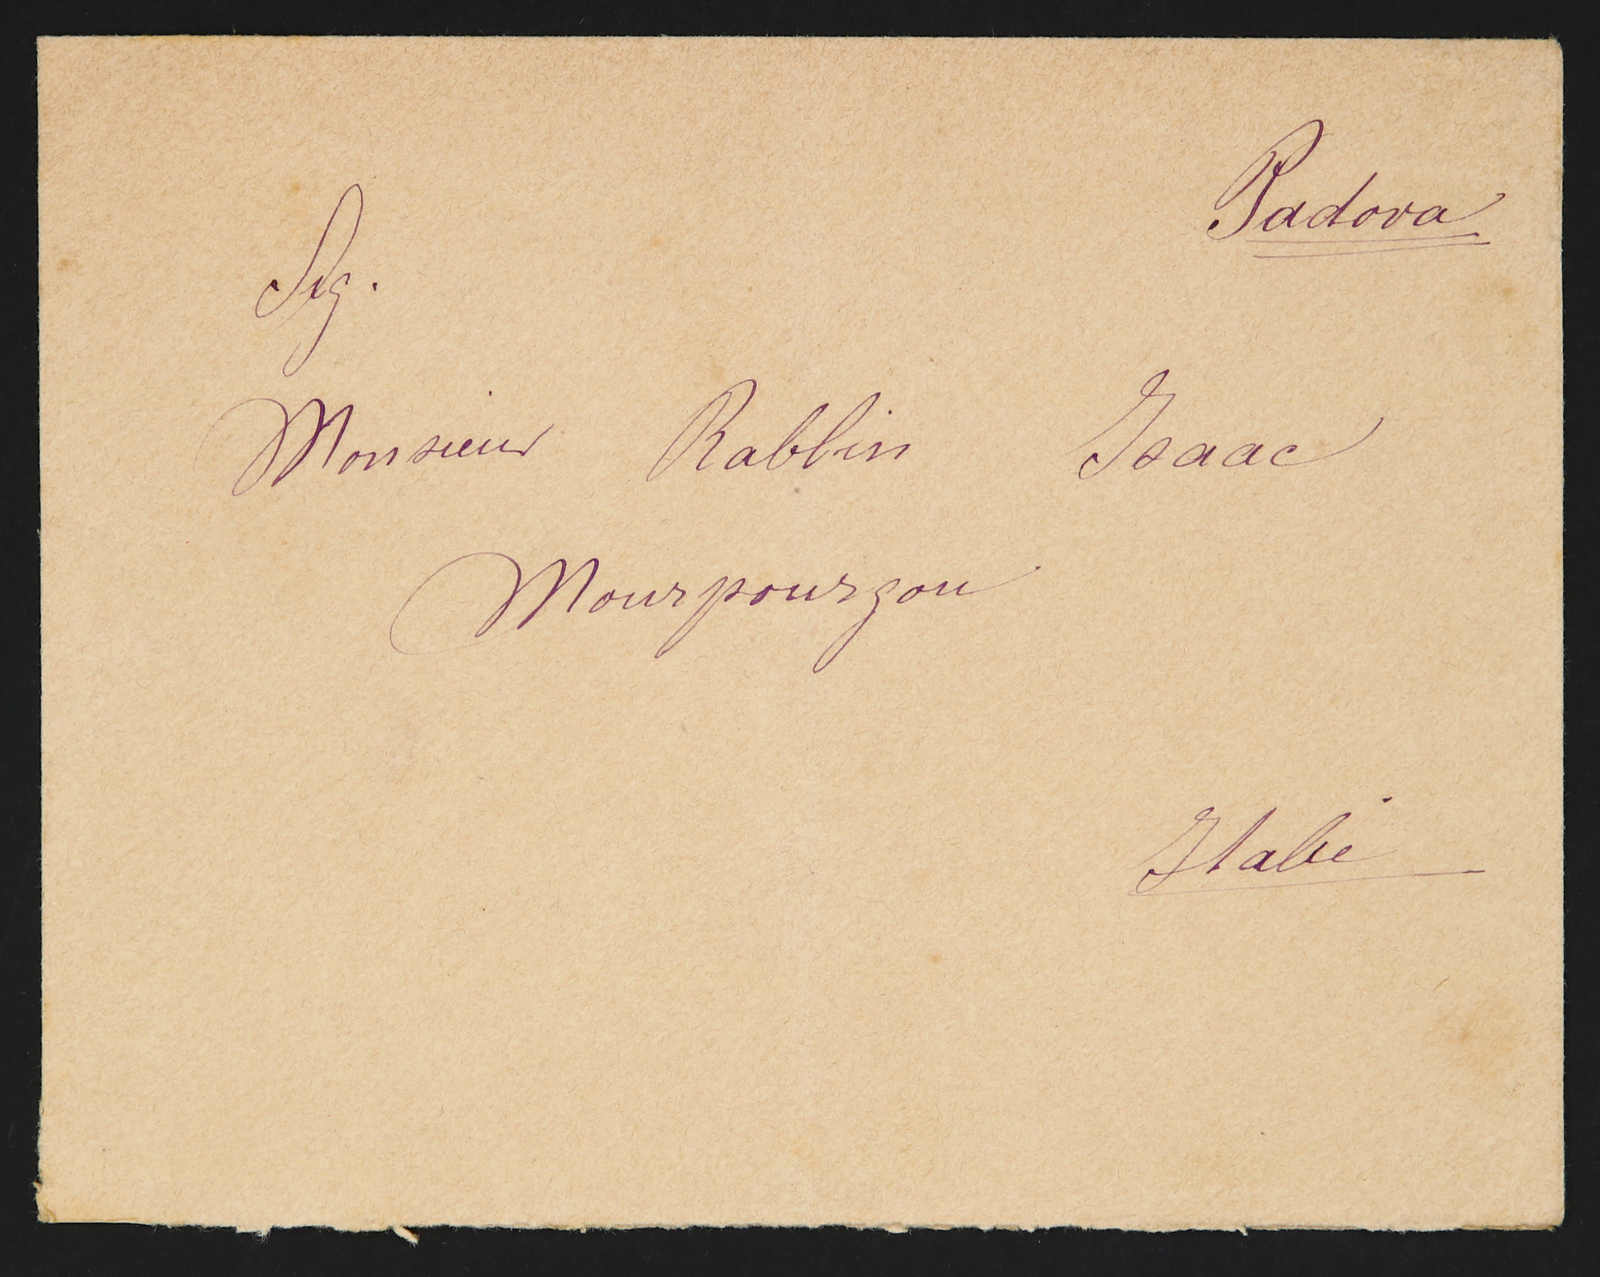 Padova
Sig.
Monsieur Rabbin Isaac
Mourpourgou
Italie